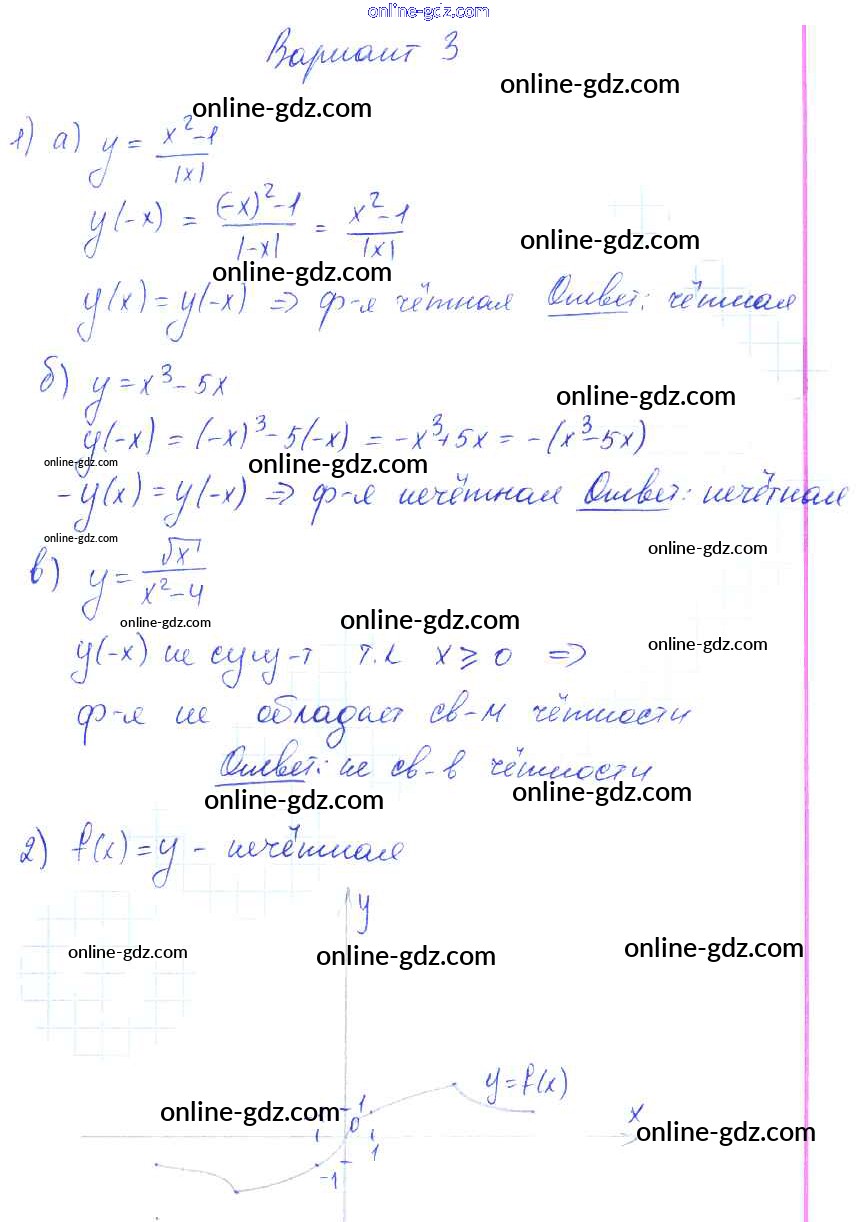 online-gdz.com
Вариант 3
online-gdz.com
online-gdz.com
1) а) y = (x²-1)/|x|
y(-x) = ((-x)²-1)/|-x| = (x²-1)/|x|
online-gdz.com
online-gdz.com
y(x) = y(-x) => ф-я чётная Ответ: чётная
б) y = x³ - 5x
online-gdz.com
y(-x) = (-x)³ - 5(-x) = -x³+5x = -(x³-5x)
online-gdz.com
online-gdz.com
-y(x) = y(-x) => ф-я нечётная Ответ: нечётная
online-gdz.com
online-gdz.com
в) y = √x/(x²-4)
online-gdz.com
online-gdz.com
online-gdz.com
y(-x) не сущ-т т.к x ⩾ 0 =>
ф-я не обладает св-м чётности
Ответ: не св-в чётности
online-gdz.com
online-gdz.com
2) f(x) = y - нечётная
y
online-gdz.com
online-gdz.com
online-gdz.com
y=f(x)
online-gdz.com
1
0
x
online-gdz.com
1
-1